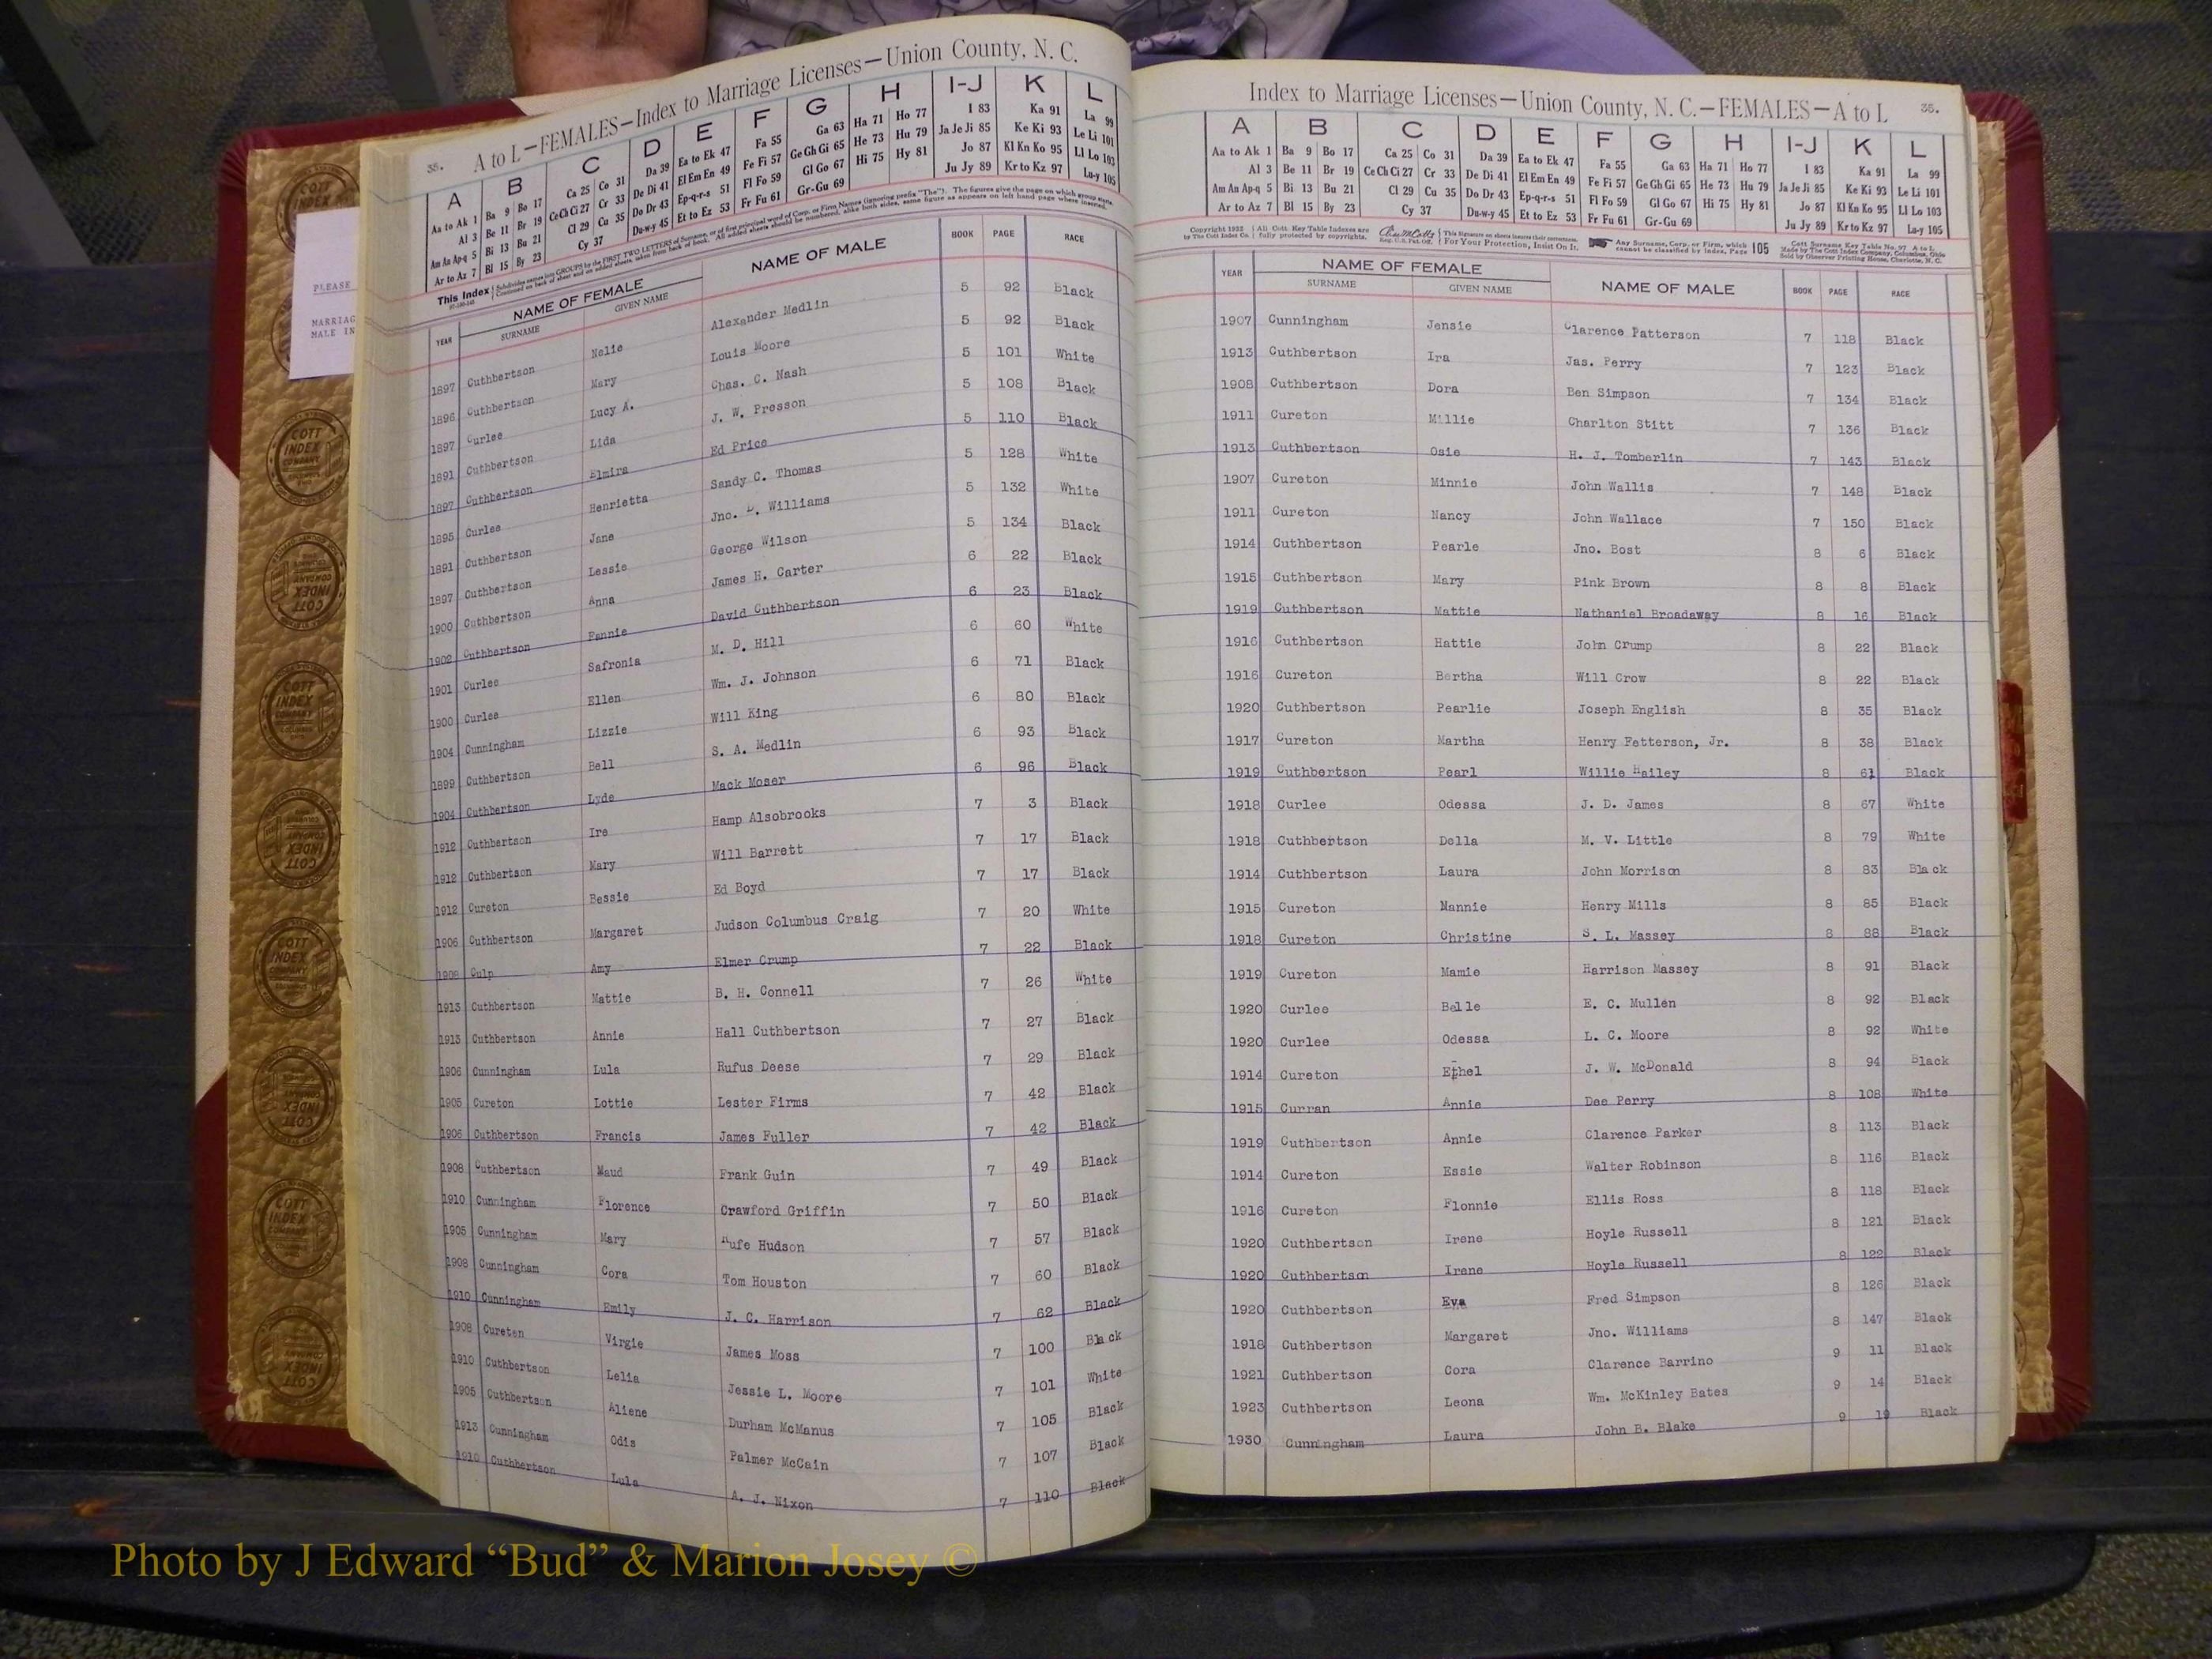 35. A to L—FEMALES—Index to Marriage Licenses—Union County, N. C.
A B C D E F G H I-J K L
Aa to Ak 1 Ba 9 Bo 17 Ca 25 Co 31 Da 39 Ea to Ek 47 Fa 55 Ga 63 Ha 71 Ho 77 I 83 Ka 91 La 99
Al 3 Be 11 Br 19 Ce Ch Ci 27 Cr 33 De Di 41 El Em En 49 Fe Fi 57 Ge Gh Gi 65 He 73 Hu 79 Ja Je Ji 85 Ke Ki 93 Le Li 101
Am An Ap-q 5 Bi 13 Bu 21 Cl 29 Cu 35 Do Dr 43 Ep-q-r-s 51 Fl Fo 59 Gl Go 67 Hi 75 Hy 81 Jo 87 Kl Kn Ko 95 Ll Lo 103
Ar to Az 7 Bl 15 By 23 Cy 37 Du-w-y 45 Et to Ez 53 Fr Fu 61 Gr-Gu 69 Ju Jy 89 Kr to Kz 97 Lu-y 105
This Index
YEAR NAME OF FEMALE SURNAME GIVEN NAME NAME OF MALE BOOK PAGE RACE
1897 Cuthbertson Nelie Alexander Medlin 5 92 Black
1896 Cuthbertson Mary Louis Moore 5 92 Black
1897 Curlee Lucy A. Chas. C. Nash 5 101 White
1891 Cuthbertson Lida J. W. Presson 5 108 Black
1897 Cuthbertson Elmira Ed Price 5 110 Black
1895 Curlee Henrietta Sandy C. Thomas 5 128 White
1891 Cuthbertson Jane Jno. D. Williams 5 132 White
1897 Cuthbertson Lessie George Wilson 5 134 Black
1900 Cuthbertson Anna James H. Carter 6 22 Black
1902 Cuthbertson Fannie David Cuthbertson 6 23 Black
1901 Curlee Safronia M. D. Hill 6 60 White
1900 Curlee Ellen Wm. J. Johnson 6 71 Black
1904 Cunningham Lizzie Will King 6 80 Black
1899 Cuthbertson Bell S. A. Medlin 6 93 Black
1904 Cuthbertson Lyde Mack Moser 6 96 Black
1912 Cuthbertson Ire Hamp Alsobrooks 7 3 Black
1912 Cuthbertson Mary Will Barrett 7 17 Black
1912 Cureton Bessie Ed Boyd 7 17 Black
1906 Cuthbertson Margaret Judson Columbus Craig 7 20 White
1908 Culp Amy Elmer Crump 7 22 Black
1913 Cuthbertson Mattie B. H. Connell 7 26 White
1913 Cuthbertson Annie Hall Cuthbertson 7 27 Black
1906 Cunningham Lula Rufus Deese 7 29 Black
1905 Cureton Lottie Lester Firms 7 42 Black
1906 Cuthbertson Francis James Fuller 7 42 Black
1908 Cuthbertson Maud Frank Guin 7 49 Black
1910 Cunningham Florence Crawford Griffin 7 50 Black
1905 Cunningham Mary Rufe Hudson 7 57 Black
1908 Cunningham Cora Tom Houston 7 60 Black
1910 Cunningham Emily J. C. Harrison 7 62 Black
1908 Cureten Virgie James Moss 7 100 Black
1910 Cuthbertson Lelia Jessie L. Moore 7 101 White
1905 Cuthbertson Aliene Durham McManus 7 105 Black
1913 Cunningham Odis Palmer McCain 7 107 Black
1910 Cuthbertson Lula A. J. Nixon 7 110 Black
PLEASE
MARRIAG
MALE IN
COTT INDEX COMPANY
Index to Marriage Licenses—Union County, N. C.—FEMALES—A to L 35.
A B C D E F G H I-J K L
Aa to Ak 1 Ba 9 Bo 17 Ca 25 Co 31 Da 39 Ea to Ek 47 Fa 55 Ga 63 Ha 71 Ho 77 I 83 Ka 91 La 99
Al 3 Be 11 Br 19 Ce Ch Ci 27 Cr 33 De Di 41 El Em En 49 Fe Fi 57 Ge Gh Gi 65 He 73 Hu 79 Ja Je Ji 85 Ke Ki 93 Le Li 101
Am An Ap-q 5 Bi 13 Bu 21 Cl 29 Cu 35 Do Dr 43 Ep-q-r-s 51 Fl Fo 59 Gl Go 67 Hi 75 Hy 81 Jo 87 Kl Kn Ko 95 Ll Lo 103
Ar to Az 7 Bl 15 By 23 Cy 37 Du-w-y 45 Et to Ez 53 Fr Fu 61 Gr-Gu 69 Ju Jy 89 Kr to Kz 97 Lu-y 105
Copyright 1922 by The Cott Index Co. All Cott Key Table Indexes are fully protected by copyrights. This Signature on sheets insures their correctness. For Your Protection, Insist On It. Any Surname, Corp. or Firm, which cannot be classified by index, Page 105 Cott Surname Key Table No. 97 A to L Made by The Cott Index Company, Columbus, Ohio Sold by Observer Printing House, Charlotte, N. C.
YEAR NAME OF FEMALE SURNAME GIVEN NAME NAME OF MALE BOOK PAGE RACE
1907 Cunningham Jensie Clarence Patterson 7 118 Black
1913 Cuthbertson Ira Jas. Perry 7 123 Black
1908 Cuthbertson Dora Ben Simpson 7 134 Black
1911 Cureton Millie Charlton Stitt 7 136 Black
1913 Cuthbertson Osie H. J. Tomberlin 7 143 Black
1907 Cureton Minnie John Wallis 7 148 Black
1911 Cureton Nancy John Wallace 7 150 Black
1914 Cuthbertson Pearle Jno. Bost 8 6 Black
1915 Cuthbertson Mary Pink Brown 8 8 Black
1919 Cuthbertson Mattie Nathaniel Broadaway 8 16 Black
1916 Cuthbertson Hattie John Crump 8 22 Black
1916 Cureton Bertha Will Crow 8 22 Black
1920 Cuthbertson Pearlie Joseph English 8 35 Black
1917 Cureton Martha Henry Fetterson, Jr. 8 38 Black
1919 Cuthbertson Pearl Willie Hailey 8 61 Black
1918 Curlee Odessa J. D. James 8 67 White
1918 Cuthbertson Della M. V. Little 8 79 White
1914 Cuthbertson Laura John Morrison 8 83 Black
1915 Cureton Nannie Henry Mills 8 85 Black
1918 Cureton Christine S. L. Massey 8 88 Black
1919 Cureton Mamie Harrison Massey 8 91 Black
1920 Curlee Belle E. C. Mullen 8 92 Black
1920 Curlee Odessa L. C. Moore 8 92 White
1914 Cureton Ethel J. W. McDonald 8 94 Black
1915 Curran Annie Dee Perry 8 108 White
1919 Cuthbertson Annie Clarence Parker 8 113 Black
1914 Cureton Essie Walter Robinson 8 116 Black
1916 Cureton Flonnie Ellis Ross 8 118 Black
1920 Cuthbertson Irene Hoyle Russell 8 121 Black
1920 Cuthbertson Irene Hoyle Russell 8 122 Black
1920 Cuthbertson Eva Fred Simpson 8 126 Black
1918 Cuthbertson Margaret Jno. Williams 8 147 Black
1921 Cuthbertson Cora Clarence Barrino 9 11 Black
1923 Cuthbertson Leona Wm. McKinley Bates 9 14 Black
1930 Cunningham Laura John B. Blake 9 19 Black
Photo by J Edward “Bud” & Marion Josey ©